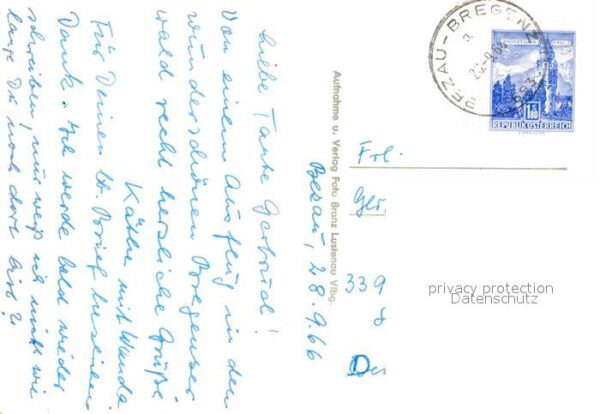 Besau, 28.9.66
Liebe Tante Gertrud!
Von einem Ausflug in den
wunderschönen Bregenzer
wald recht herzliche Grüße
Käthe mit Wanda
Für Deinen lb. Brief besten
Dank. Ich werde bald wieder
schreiben, nur weiß ich nicht wie
lange Du noch dort bist?
Aufnahme u. Verlag Foto Branz Lustenau Vlbg.
BEZAU-BREGENZ
a
REPUBLIK ÖSTERREICH
1.80
Frl.
Ger.
339
privacy protection
Datenschutz